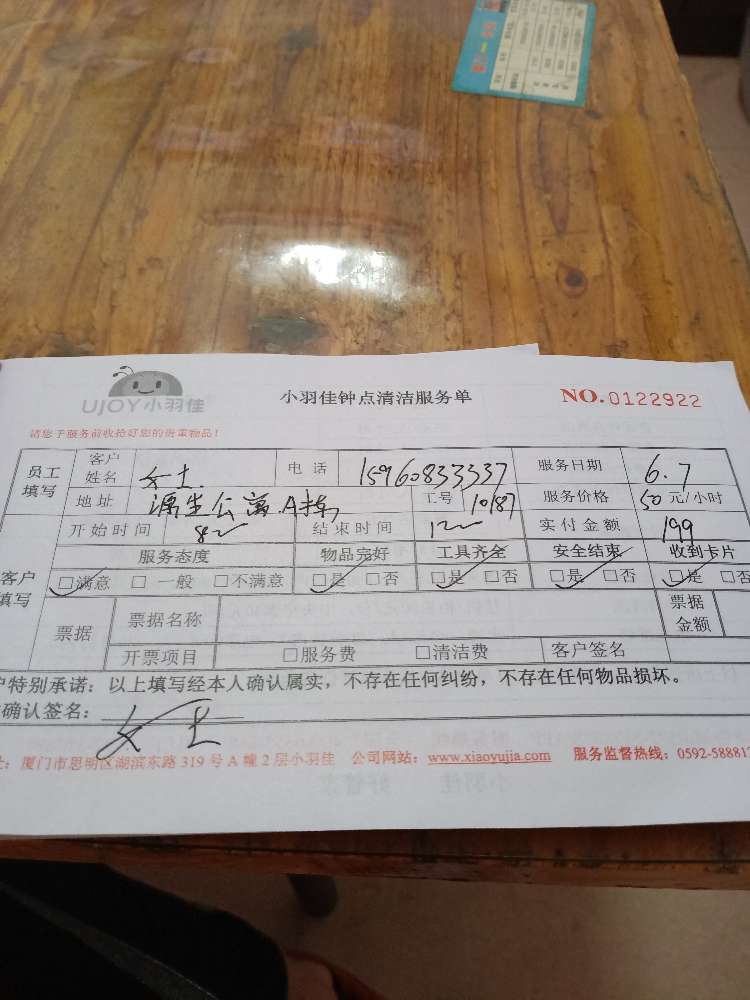 UJOY小羽佳
小羽佳钟点清洁服务单
NO.0122922
请您于服务前收拾好您的贵重物品!
员工填写 客户姓名 女士. 电话 15960833337 服务日期 6.7
地址 源生公寓.A栋 工号 10187 服务价格 50元/小时
客户填写 开始时间 8 结束时间 12 实付金额 199
服务态度 物品完好 工具齐全 安全结束 收到卡片
□满意 □一般 □不满意 □是 □否 □是 □否 □是 □否 □是 □否
票据 票据名称 票据金额
开票项目 □服务费 □清洁费 客户签名
户特别承诺：以上填写经本人确认属实，不存在任何纠纷，不存在任何物品损坏。
确认签名： 女士
：厦门市思明区湖滨东路319号A幢2层小羽佳 公司网站：www.xiaoyujia.com 服务监督热线：0592-58881